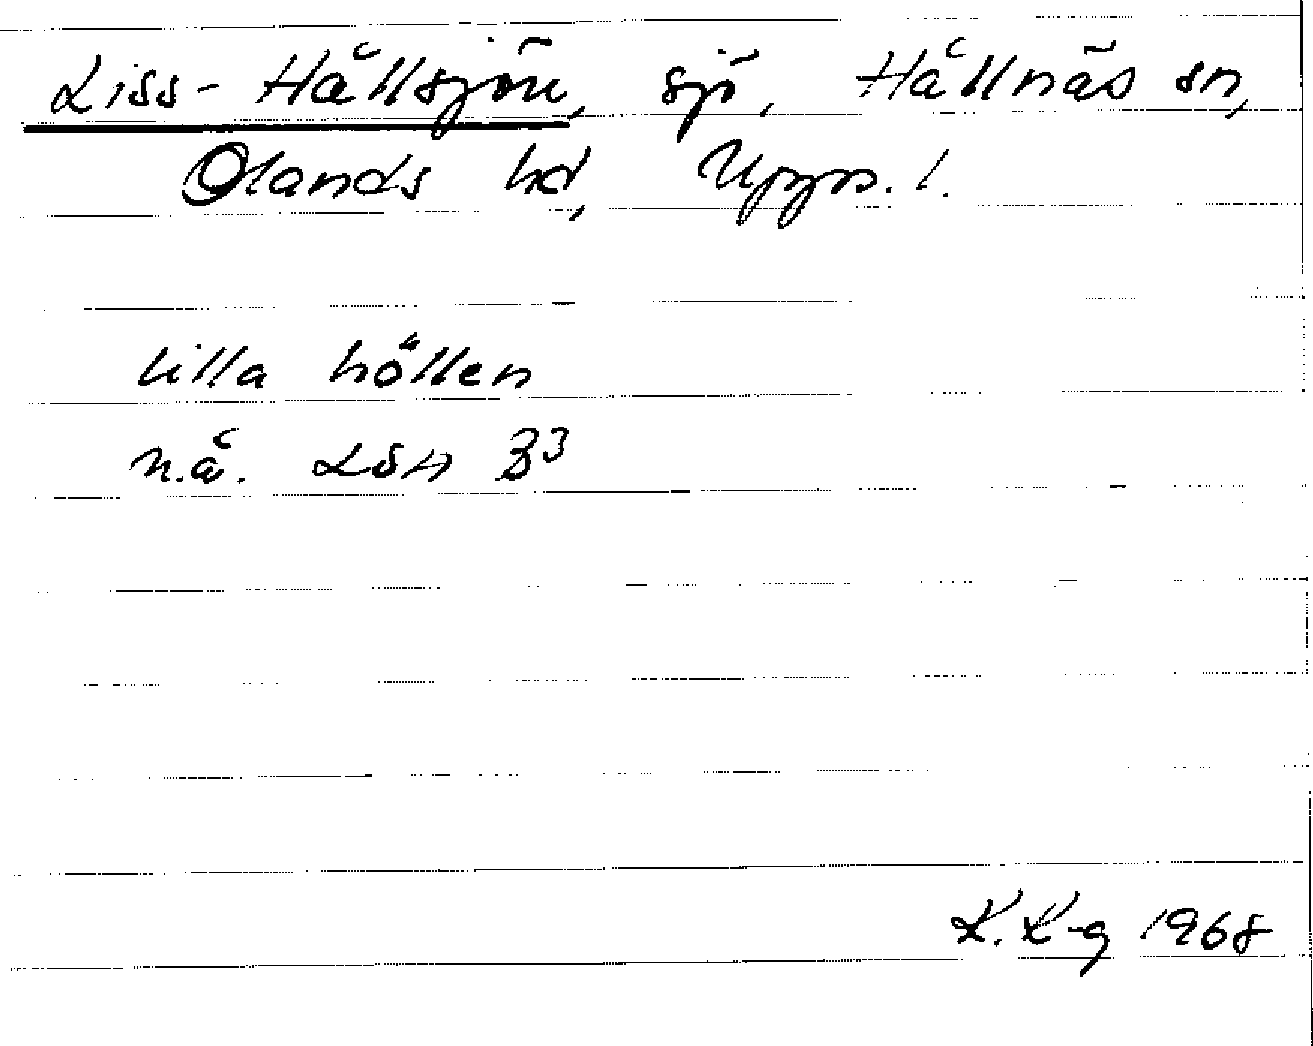 Liss-Hållsjön, sjö, Hållnäs sn,
Olands hd, Upps. l.
lilla hôllen
n.å. LSA B3
K. K-g 1968